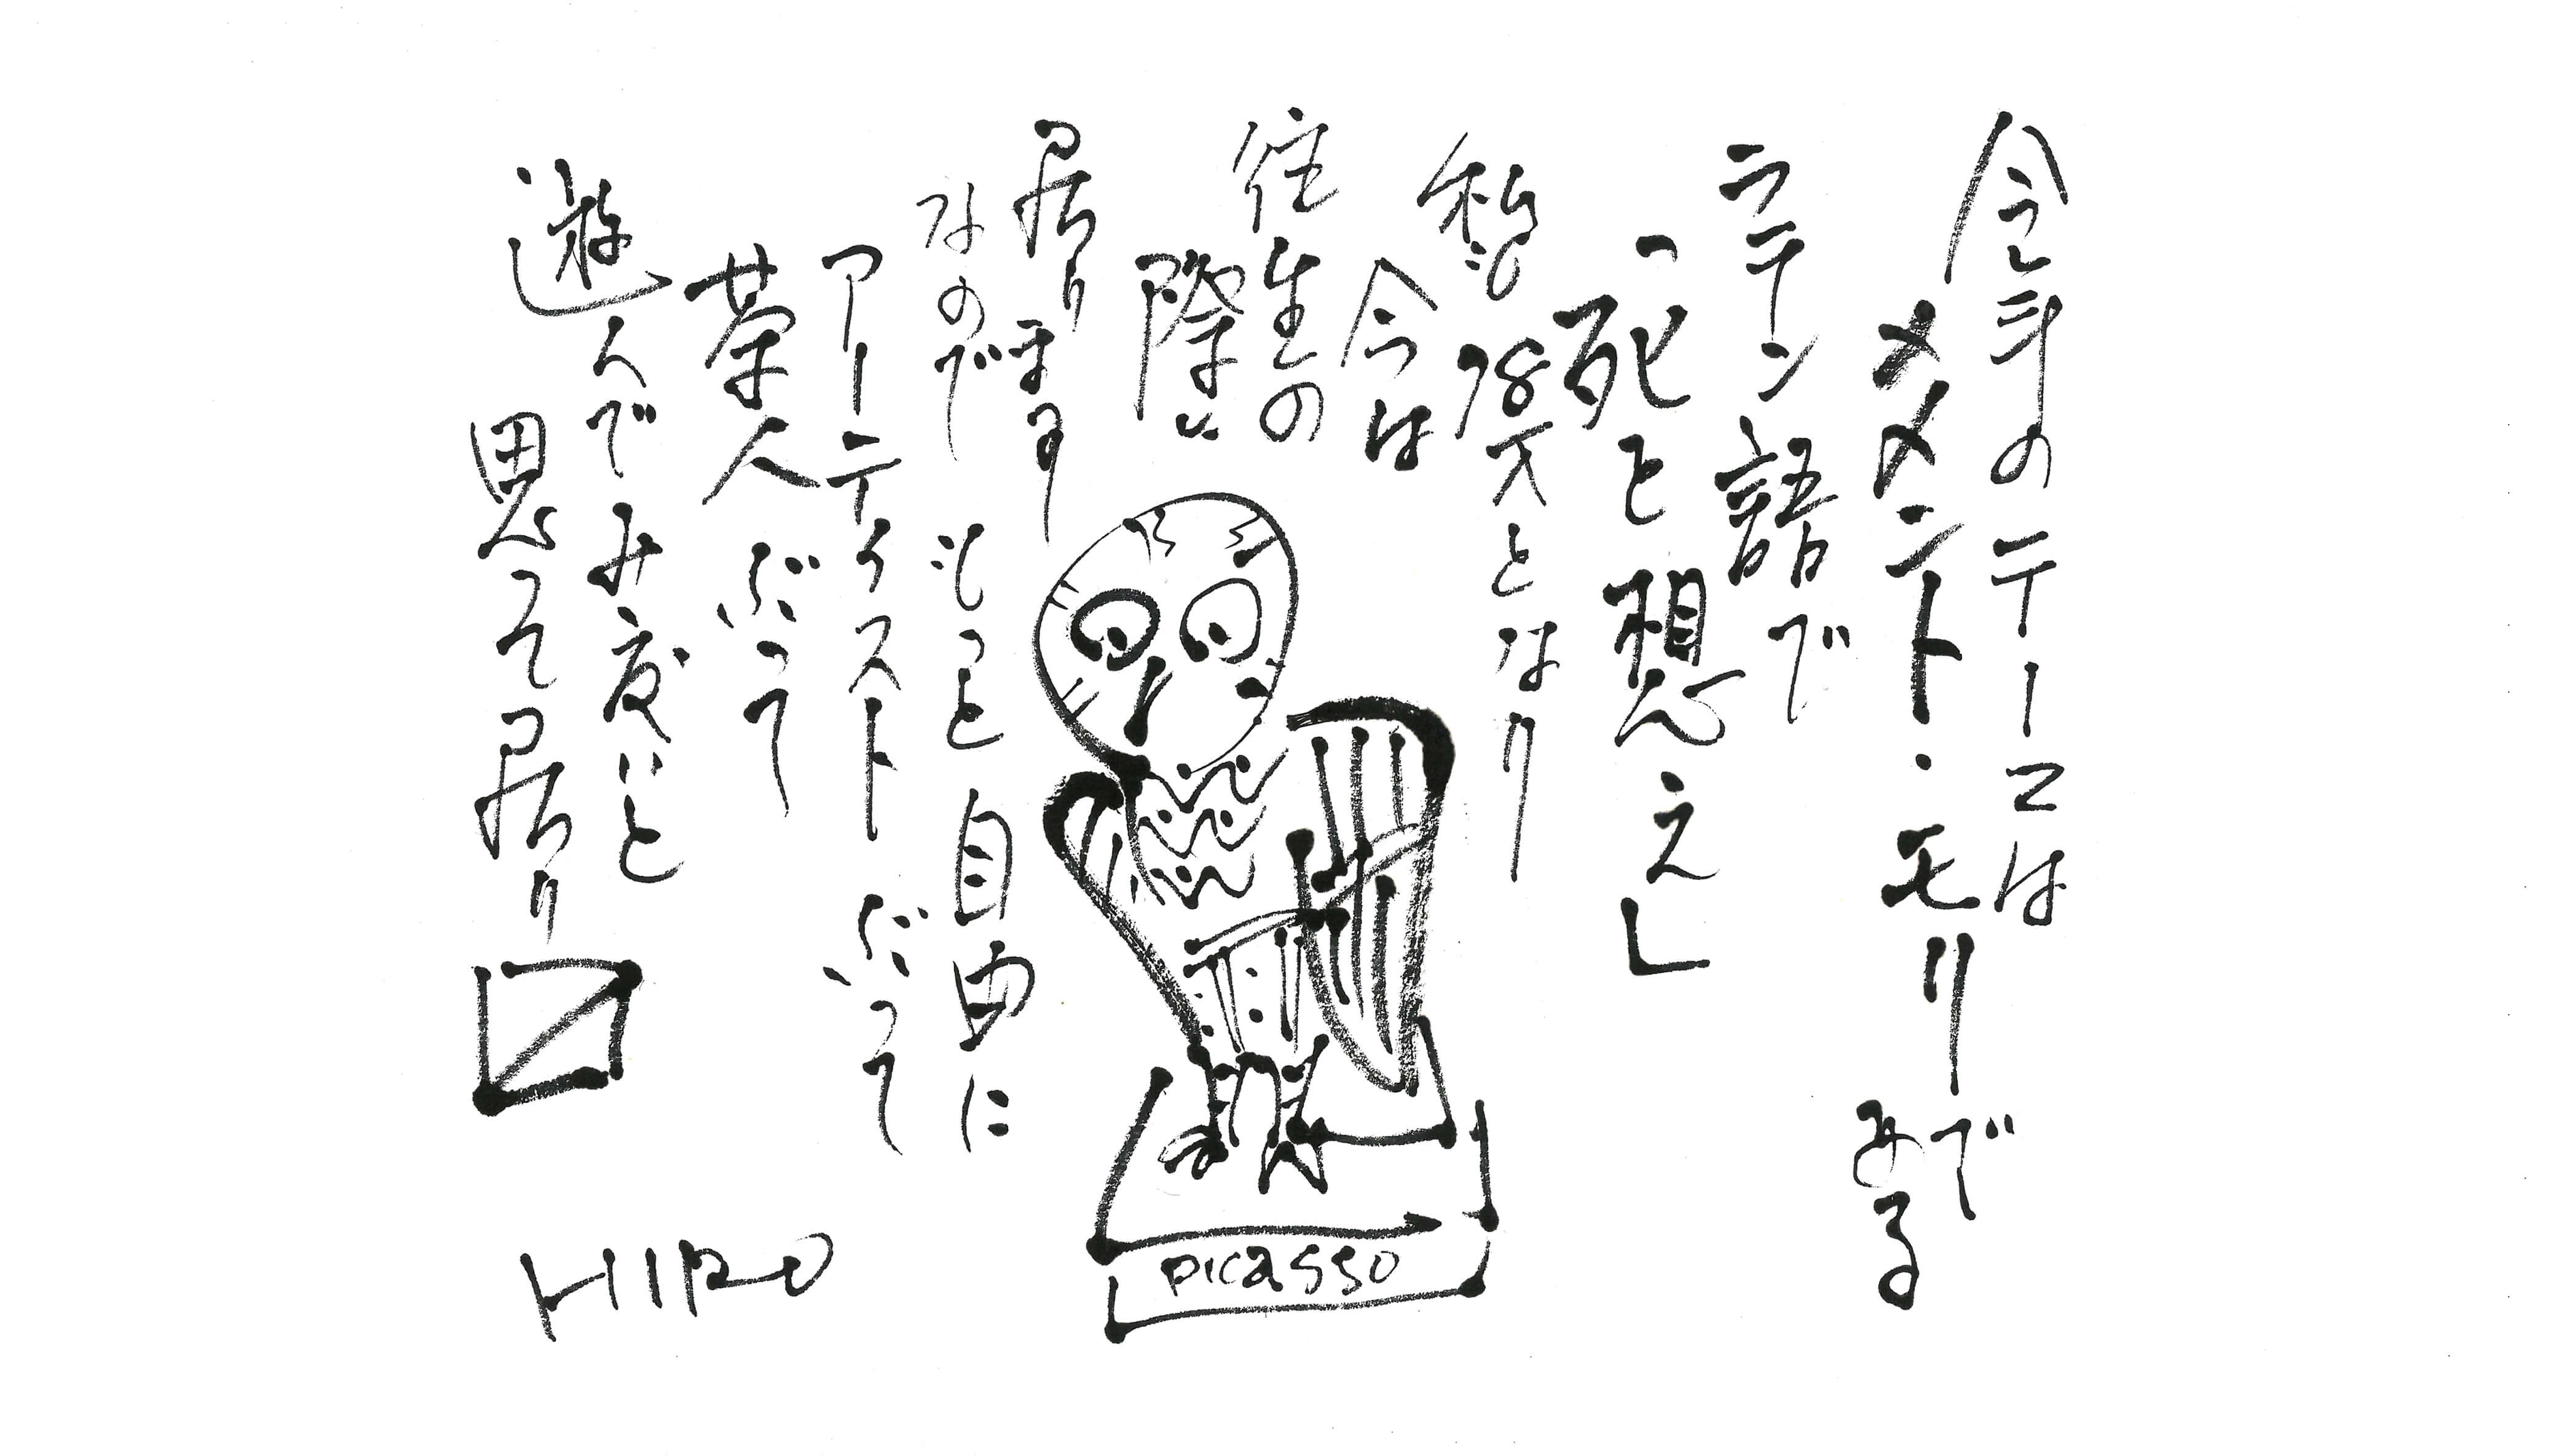 今年のテーマは
メメント・モリである
ラテン語で
「死を想え」
私も78才となり
今は
往生の
際に
居ります
なので もっと自由に
アーティストぶって
茶人ぶって
遊んでみ度いと
思って居り〼
HIRO
picasso